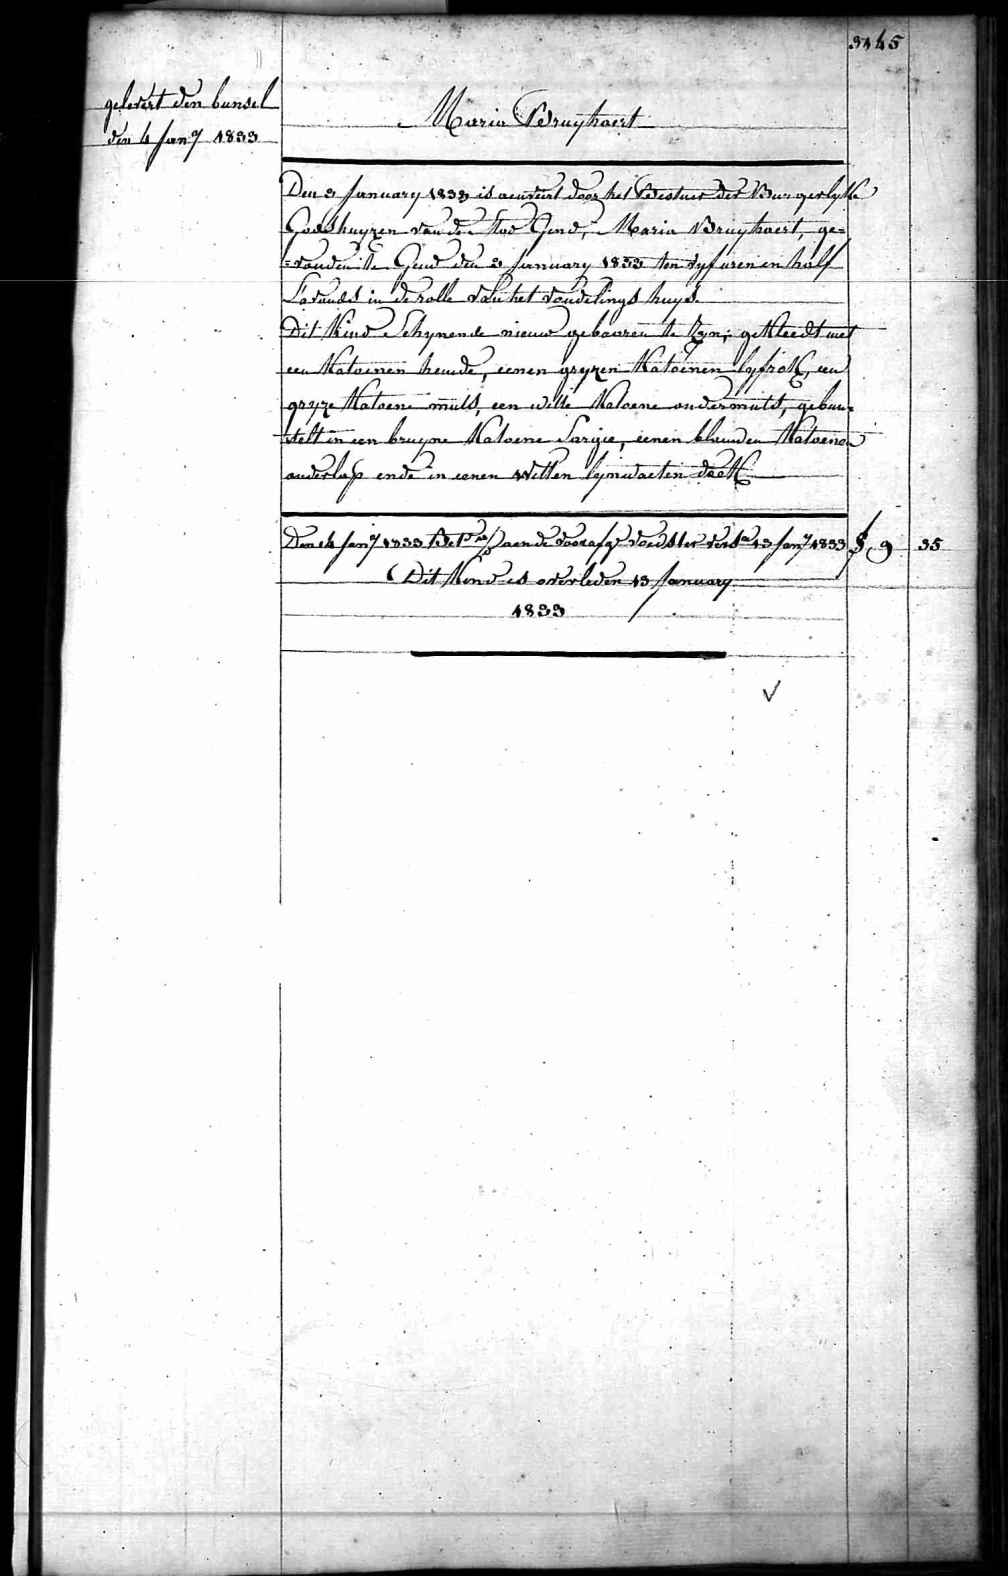 3145
gelevert den bunsel
den 4 Jany 1833
Maria Bruyhaert
Den 3 January 1833 is aenveirt door het Bestuer der Burgerlyke
Godshuyzen van de Stad Gend, Maria Bruyhaert, ge=
=vonden te Gend den 3 January 1833 ten vyf uren en half
s'avonds in de rolle van het vondelings huys.
Dit Kind schynende nieuw gebooren te zyn; gekleedt met
een Katoenen hemde, eenen gryzen Katoenen lyfrok, een
gryze Katoene muts, een witte Katoene ondermuts, gebun=
stelt in een bruyne Katoene Sargie, eenen blauwen Katoenen
onderlap ende in eenen witten lynwaeten doek
Den 4 Jany 1833 Bet aen de voorasge voedster vers 13 Jany 1833 § 9 35
Dit Kind is overleden 13 January
1833